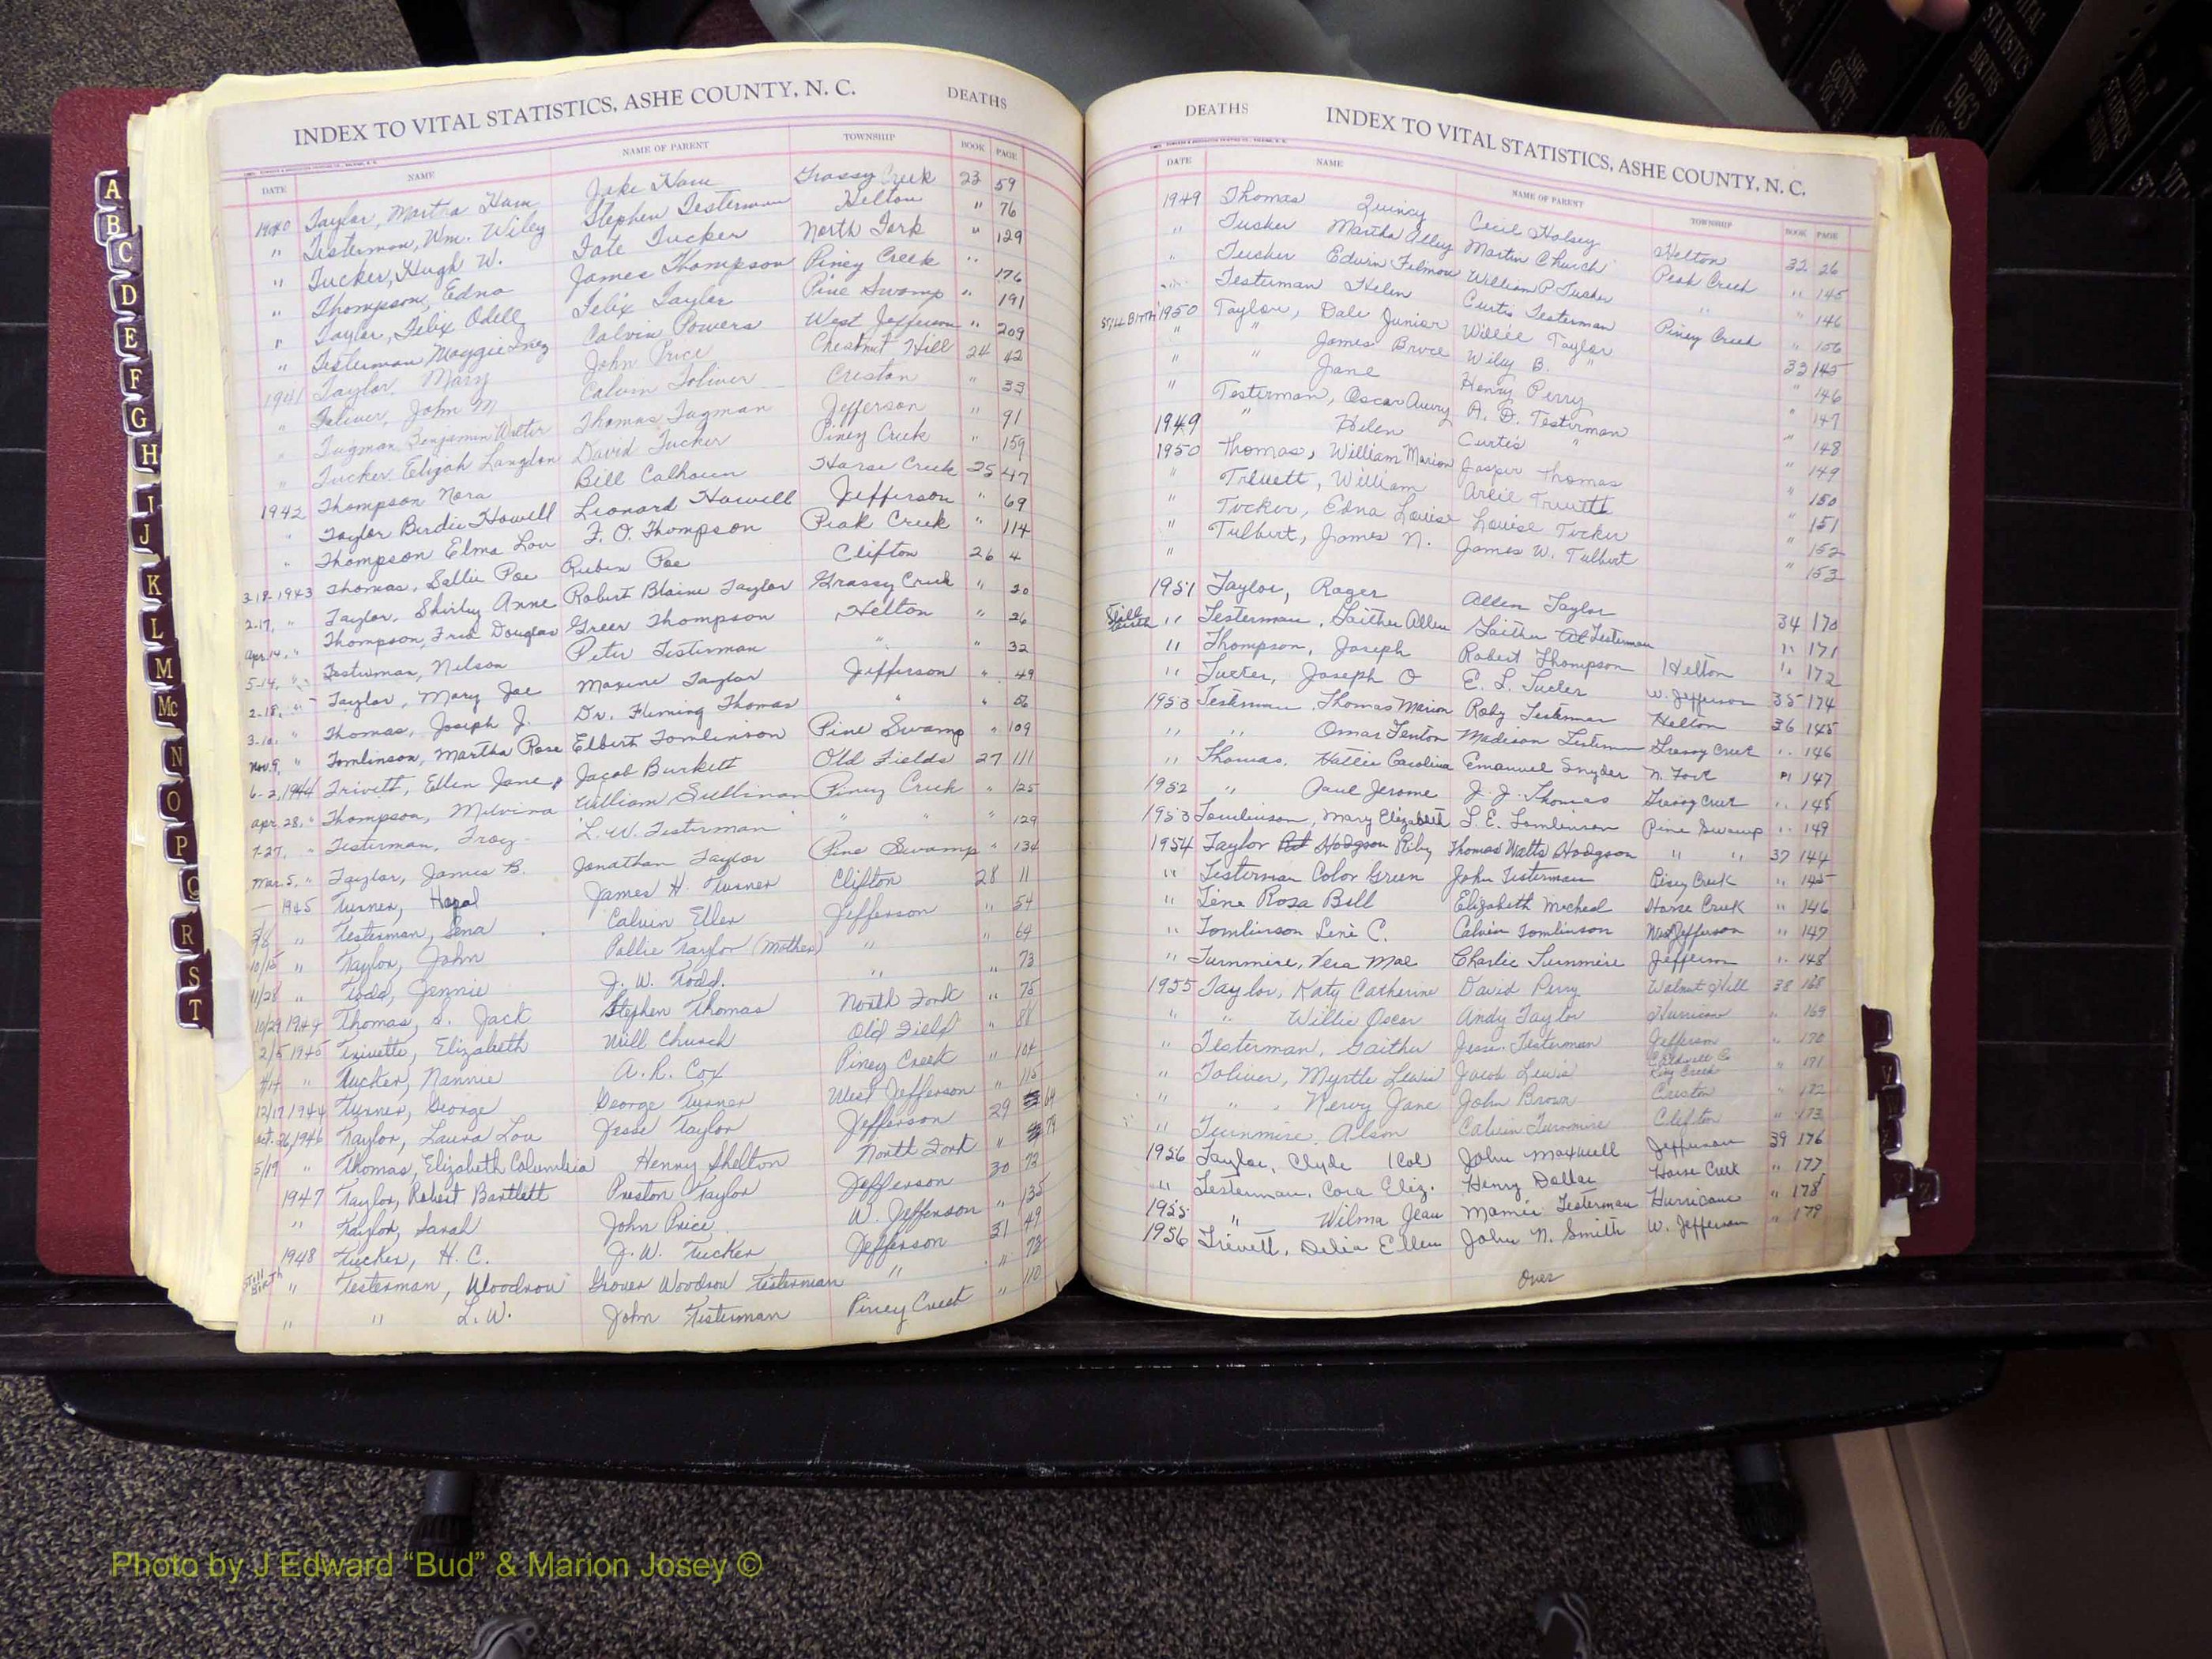 INDEX TO VITAL STATISTICS, ASHE COUNTY, N. C. DEATHS
DATE NAME NAME OF PARENT TOWNSHIP BOOK PAGE
1940 Taylor, Martha Ham Jake Ham Grassy Creek 23 59
" Testerman, Wm. Wiley Stephen Testerman Helton " 76
" Tucker, Hugh W. Tate Tucker North Fork " 129
" Thompson, Edna James Thompson Piney Creek " 176
" Taylor, Felix Odell Felix Taylor Pine Swamp " 191
" Testerman Maggie Inez Calvin Powers West Jefferson " 209
1941 Taylor, Mary John Price Chestnut Hill 24 42
" Toliver, John M Calvin Toliver Creston " 33
" Tugman Benjamin Walter Thomas Tugman Jefferson " 91
" Tucker Elijah Langdon David Tucker Piney Creek " 159
1942 Thompson Nora Bill Calhoun Horse Creek 25 47
" Taylor Birdie Howell Leonard Howell Jefferson " 69
" Thompson Elma Lou F. O. Thompson Peak Creek " 114
3-18-1943 Thomas, Sallie Poe Ruben Poe Clifton 26 4
2-17, " Taylor, Shirley Anne Robert Blaine Taylor Grassy Creek " 20
Apr. 14, " Thompson, Fred Douglas Greer Thompson Helton " 26
5-14, " Testerman, Nelson Peter Testerman " " 32
2-18, " Taylor, Mary Joe Maxine Taylor Jefferson " 49
3-10, " Thomas, Joseph J. Dr. Fleming Thomas " " 56
Nov. 9, " Tomlinson, Martha Rose Elbert Tomlinson Pine Swamp " 109
6-2, 1944 Trivett, Ellen Jane Jacob Burkett Old Fields 27 111
Apr. 28, " Thompson, Melvina William Sullivan Piney Creek " 125
7-27, " Testerman, Troy L. W. Testerman " " " 129
Mar. 5, " Taylor, James B. Jonathan Taylor Pine Swamp " 134
— 1945 Turner, Hazel James H. Turner Clifton 28 11
" Testerman, Sena Calvin Eller Jefferson " 54
10/15 " Taylor, John Pollie Taylor (Mother) " " 64
11/28 " Todd, Jennie J. W. Todd. " " 73
10/29 1944 Thomas, S. Jack Stephen Thomas North Fork " 75
2/5 1945 Trivette, Elizabeth Will Church Old Field " 88
" Tucker, Nannie A. R. Cox Piney Creek " 104
12/17 1944 Turner, George George Turner West Jefferson " 115
Oct. 26, 1946 Taylor, Laura Lou Jesse Taylor Jefferson 29 64
5/19 " Thomas, Elizabeth Columbia Henry Shelton North Fork " 79
1947 Taylor, Robert Bartlett Preston Taylor Jefferson 30 72
" Taylor, Sarah John Price W. Jefferson " 135
1948 Tucker, H. C. J. W. Tucker Jefferson 31 49
Still Birth " Testerman, Woodrow Grover Woodrow Testerman " " 78
" " L. W. John Testerman Piney Creek " 110
DEATHS INDEX TO VITAL STATISTICS, ASHE COUNTY, N. C.
DATE NAME NAME OF PARENT TOWNSHIP BOOK PAGE
1949 Thomas Quincy Cecil Halsey Helton 32 26
" Tusker Martha Alley Martin Church Peak Creek " 145
" Tusker Edwin Filmore William P Tusker " " 146
" Testerman Helen Curtis Testerman Piney Creek " 156
STILL BIRTH 1950 Taylor, Dale Junior Willie Taylor 33 145
" " James Bruce Wiley B. " " 146
" " Jane Henry Perry " 147
" Testerman, Oscar Avery A. D. Testerman " 148
1949 " Helen Curtis " " 149
1950 Thomas, William Marion Jasper Thomas " 150
" Truett, William Arlie Truett " 151
" Tucker, Edna Louise Louise Tucker " 152
" Tulbert, James N. James W. Tulbert " 153
1951 Taylor, Roger Allen Taylor 34 170
Still birth " Testerman, Gaither Allen Gaither Testerman " 171
" Thompson, Joseph Robert Thompson Helton " 172
" Tucker, Joseph O E. L. Tucker W. Jefferson 35 174
1953 Testerman, Thomas Marion Roby Testerman Helton 36 145
" " Omar Fenton Madison Testerman Grassy Creek " 146
" Thomas, Hattie Carolina Emanuel Snyder N. Fork " 147
1952 " Paul Jerome J. J. Thomas Grassy Creek " 148
1953 Tomlinson, Mary Elizabeth S. E. Tomlinson Pine Swamp " 149
1954 Taylor Hodgson Riby Thomas Watts Hodgson " " 37 144
" Testerman Color Green John Testerman Piney Creek " 145
" Tene Rosa Bell Elizabeth Micheal Horse Creek " 146
" Tomlinson Lene C. Calvin Tomlinson West Jefferson " 147
" Turnmire, Vera Mae Charlie Turnmire Jefferson " 148
1955 Taylor, Katy Catherine David Perry Walnut Hill 38 168
" " Willie Oscar Andy Taylor Hurricane " 169
" Testerman, Gaither Jesse Testerman Jefferson " 170
" Toliver, Myrtle Lewis Jacob Lewis Caldwell Co King Creek " 171
" " , Nervy Jane John Brown Creston " 172
" Turnmire, Alson Calvin Turnmire Clifton " 173
1956 Taylor, Clyde (Col) John Maxwell Jefferson 39 176
" Testerman, Cora Eliz. Henry Dollar Horse Creek " 177
1955 " Wilma Jean Mamie Testerman Hurricane " 178
1956 Trivett, Delia Ellen John N. Smith W. Jefferson " 179
Over
A
B
C
D
E
F
G
H
I
J
K
L
M
Mc
N
O
P
Q
R
S
T
V
Z
VITAL STATISTICS BIRTHS 1963
ASHE COUNTY
Photo by J Edward “Bud” & Marion Josey ©